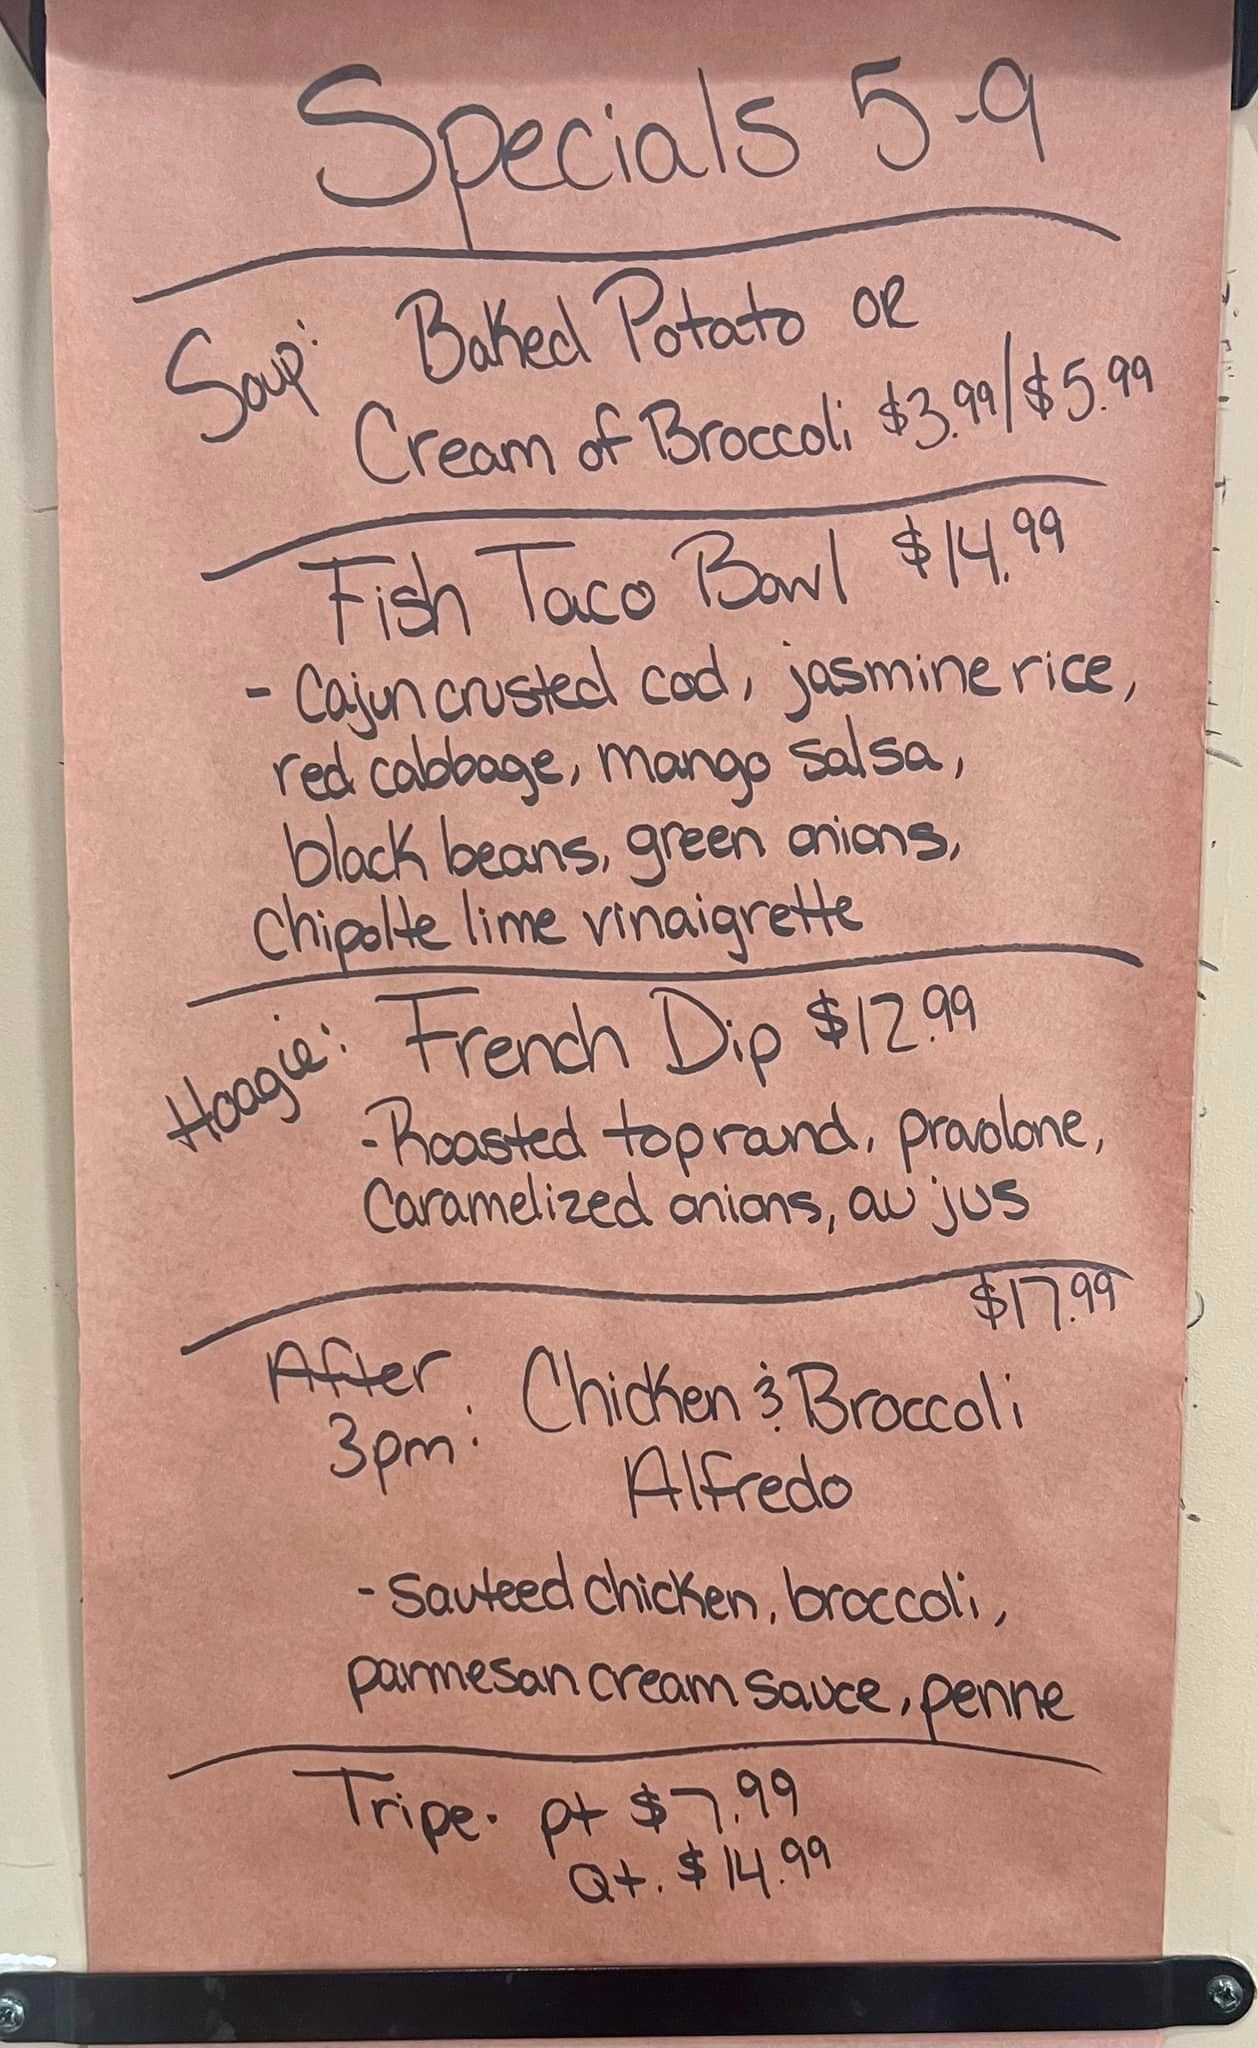 Specials 5-9
Soup: Baked Potato OR
Cream of Broccoli $3.99/$5.99
Fish Taco Bowl $14.99
- Cajun crusted cod, jasmine rice,
red cabbage, mango salsa,
black beans, green onions,
Chipolte lime vinaigrette
Hoagie: French Dip $12.99
- Roasted top round, provolone,
Caramelized onions, au jus
$17.99
After
3pm: Chicken & Broccoli
Alfredo
- Sauteed chicken, broccoli,
parmesan cream sauce, penne
Tripe. pt $7.99
Qt. $14.99